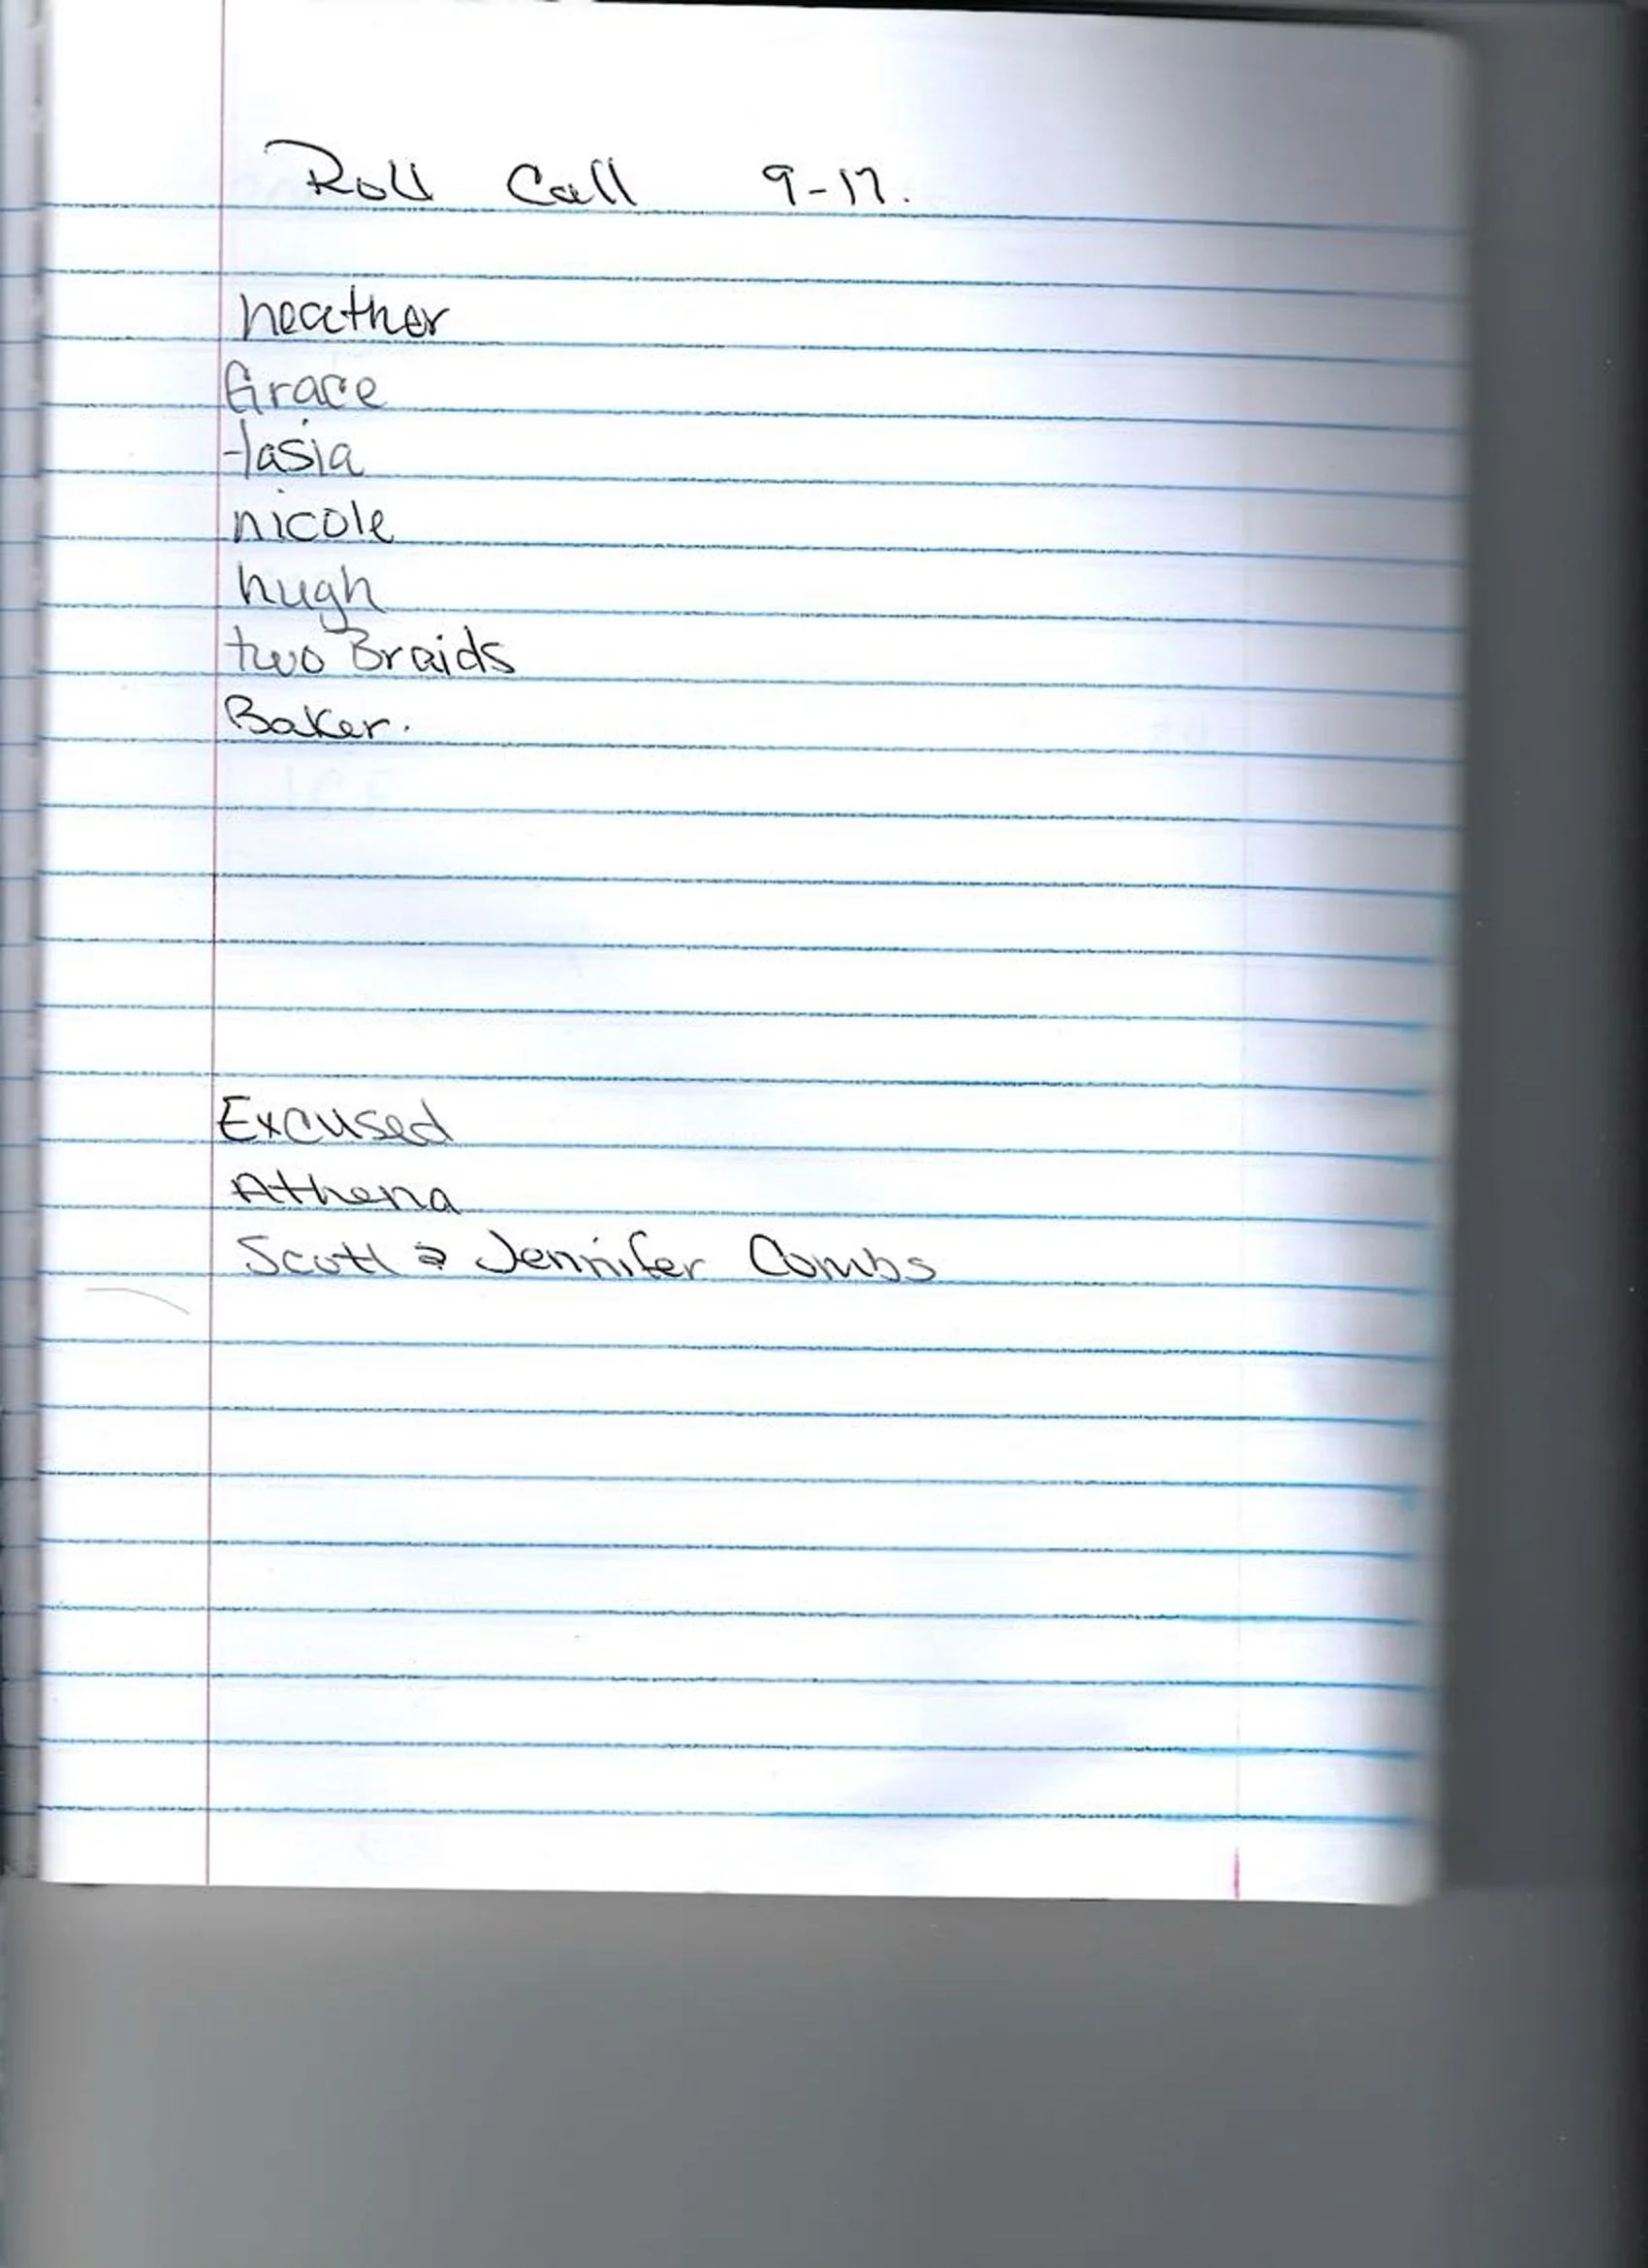 Roll Call 9-17.
heather
Grace
tasia
nicole
hugh
two Braids
Baker.
Excused
Athena
Scott & Jennifer Combs